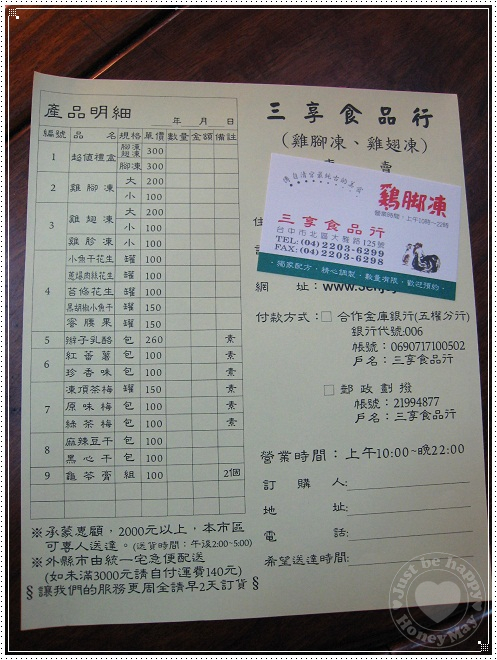 產品明細
年 月 日
編號 品名 規格 單價 數量 金額 備註
1 超值禮盒 腳凍 翅凍 300
腳凍 300
2 雞腳凍 大 200
小 100
3 雞翅凍 大 200
小 100
雞胗凍 小 100
4 小魚干花生 罐 100
蔥爆肉絲花生 罐 100
苔條花生 罐 100
黑胡椒小魚干 罐 150
蜜腰果 罐 150
5 辮子乳酪 包 260 素
6 紅蕃薯 包 100 素
珍香味 包 100 素
7 凍頂茶梅 罐 150 素
原味梅 包 100 素
綠茶梅 包 100 素
8 麻辣豆干 包 100
黑心干 包 100
9 龜苓膏 組 100 2個
※承蒙惠顧，2000元以上，本市區
可專人送達。(送貨時間：午後2:00~5:00)
※外縣市由統一宅急便配送
(如未滿3000元請自付運費140元)
§讓我們的服務更周全請早2天訂貨§
三享食品行
(雞腳凍、雞翅凍)
專 賣
鷄脚凍
營業時間：上午10時~22時
三享食品行
台中市北區大雅路125號
TEL:(04)2203-6299
FAX:(04)2203-6298
‧獨家配方‧精心調製‧數量有限‧歡迎預約‧
網 址：www.
付款方式：□ 合作金庫銀行(五權分行)
銀行代號:006
帳號：0690717100502
戶名：三享食品行
□ 郵政劃撥
帳號：21994877
戶名：三享食品行
營業時間：上午10:00~晚22:00
訂購人:
地 址:
電 話:
希望送達時間:
Just be happy
HoneyMay